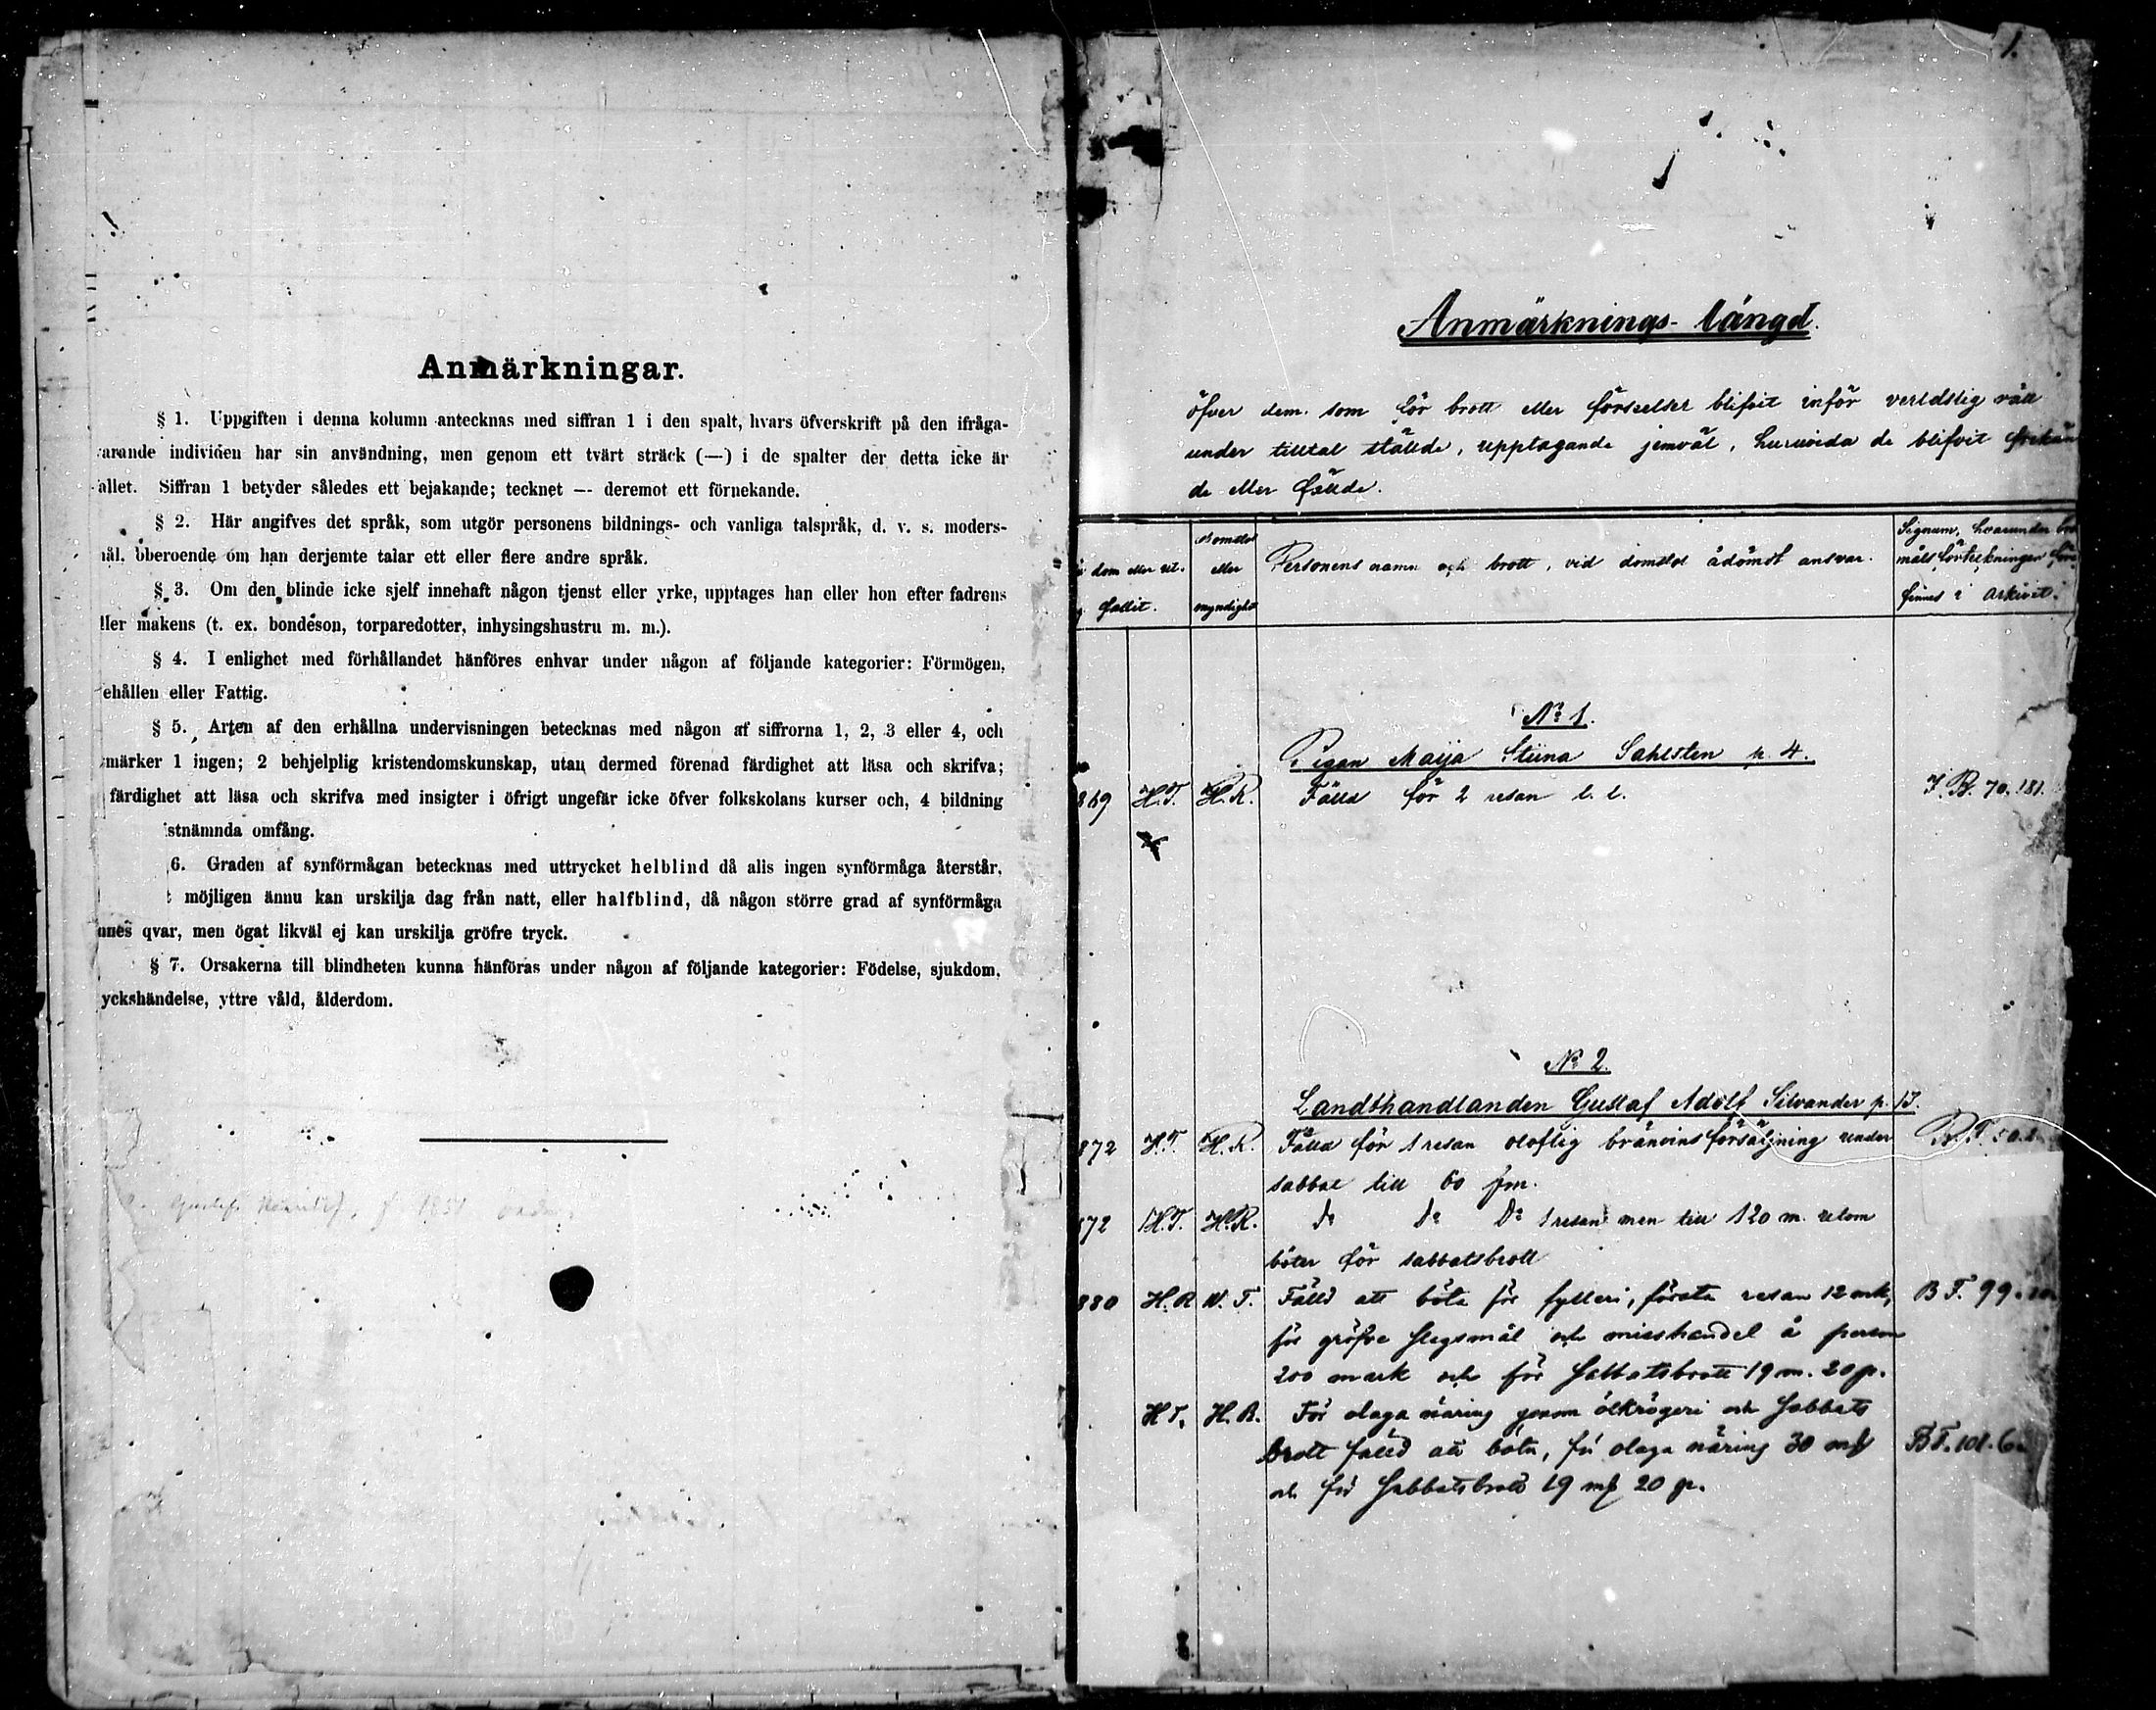 Anmärkningar.
§ 1. Uppgiften i denna kolumn antecknas med siffran 1 i den spalt, hvars öfverskrift på den ifråga-
varande individen har sin användning, men genom ett tvärt sträck (—) i de spalter der detta icke är
fallet. Siffran 1 betyder således ett bejakande; tecknet — deremot ett förnekande.
§ 2. Här angifves det språk, som utgör personens bildnings- och vanliga talspråk, d. v. s. moders-
mål, oberoende om han derjemte talar ett eller flere andre språk.
§ 3. Om den blinde icke sjelf innehaft någon tjenst eller yrke, upptages han eller hon efter fadrens
eller makens (t. ex. bondeson, torparedotter, inhysingshustru m. m.).
§ 4. I enlighet med förhållandet hänföres enhvar under någon af följande kategorier: Förmögen,
ehållen eller Fattig.
§ 5. Arten af den erhållna undervisningen betecknas med någon af siffrorna 1, 2, 3 eller 4, och
märker 1 ingen; 2 behjelplig kristendomskunskap, utan dermed förenad färdighet att läsa och skrifva;
färdighet att läsa och skrifva med insigter i öfrigt ungefär icke öfver folkskolans kurser och, 4 bildning
stnämnda omfång.
6. Graden af synförmågan betecknas med uttrycket helblind då alls ingen synförmåga återstår,
t möjligen ännu kan urskilja dag från natt, eller halfblind, då någon större grad af synförmåga
nnes qvar, men ögat likväl ej kan urskilja gröfre tryck.
§ 7. Orsakerna till blindheten kunna hänföras under någon af följande kategorier: Födelse, sjukdom,
yckshändelse, yttre våld, ålderdom.
1.
Anmärknings-längd.
öfver dem som för brott eller förseelser blifvit inför verldslig rätt
under tilltal stälde, upptagande jemväl, huruvida de blifvit frikän
de eller fälde.
dom eller ut.
fallit.
Domstol
eller
myndighet
Personens namn och brott, vid domstol ådömdt ansvar.
Signum, hvarunder bro
måls förteckningen före
finnes i arkivet.
No 1.
Pigan Maija Stiina Sahlsten p. 4.
869 H.T. H.R. Fälld för 2 resan l. l. J. B. 70. 181.
No 2.
Landthandlanden Gustaf Adolf Silvander p. 15.
872 H.T. H.R. Fälld för 1 resan oloflig bränvinsförsäljning under B. T. 50.
sabbat till 60 fm.
872 H.T. H.R. do do Do 1 resan men till 120 m. utom
böter för sabbatsbrott
880 H.R. W.T. Fälld att böta för fylleri, första resan 12 mk, B T. 99.
för gröfre slagsmål och misshandel å person
200 mark och för Sabbatsbrott 19 m. 20 p.
H T. H. R. För olaga näring genom ölkrögeri och Sabbats
brott fälld att böta, för olaga näring 30 mk BT. 101. 6
och för Sabbatsbrott 19 mk 20 p.